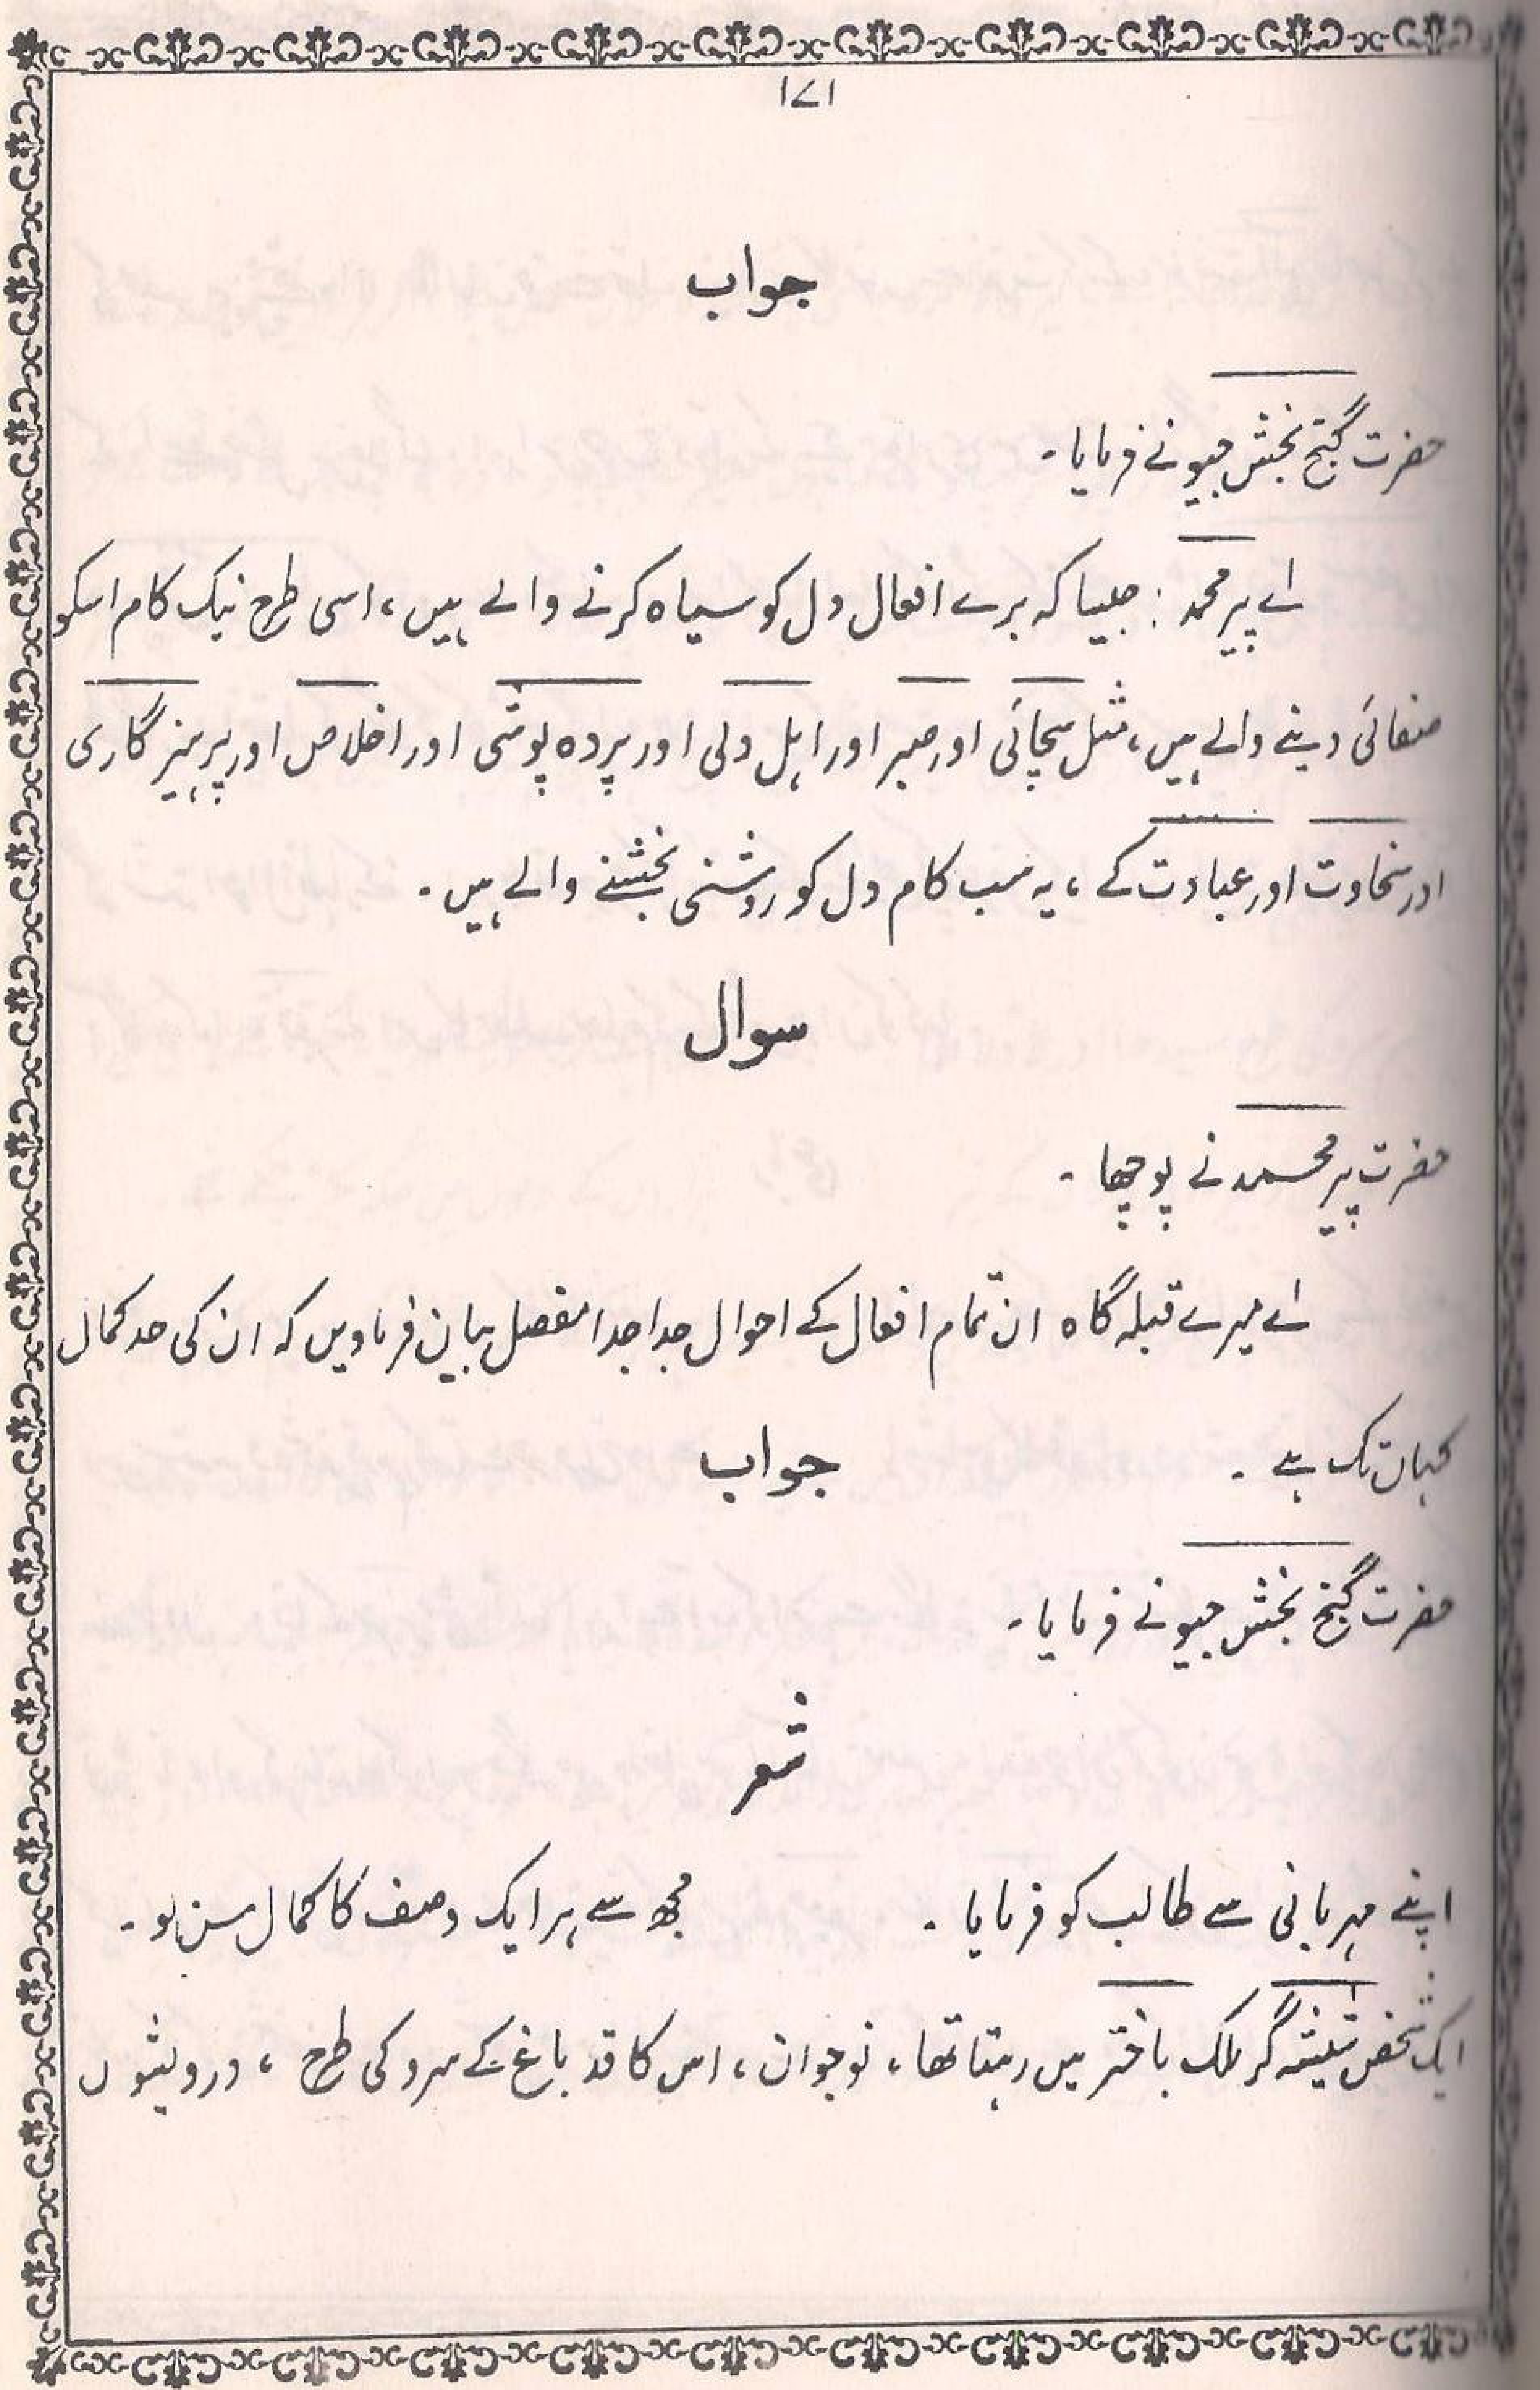 ۱۷۱
جواب
حضرت گنج بخش جیو نے فرمایا۔
اے پیر محمد : جیسا کہ برے افعال دل کو سیاہ کرنے والے ہیں، اسی طرح نیک کام اسکو
صفائی دینے والے ہیں، مثل سچائی اور صبر اور اہل دلی اور پردہ پوشی اور اخلاص اور پرہیزگاری
اور سخاوت اور عبادت کے، یہ سب کام دل کو روشنی بخشنے والے ہیں۔
سوال
حضرت پیر محمد نے پوچھا۔
اے میرے قبلہ گاہ ان تمام افعال کے احوال جدا جدا مفصل بیان فرماویں کہ ان کی حد کمال
کہاں تک ہے۔
جواب
حضرت گنج بخش جیو نے فرمایا۔
شعر
اپنے مہربانی سے طالب کو فرمایا۔ مجھ سے ہر ایک وصف کا کمال سن لو۔
ایک شخص شیشہ گر ملک باختر میں رہتا تھا، نوجوان، اس کا قد باغ کے سرو کی طرح، درویشوں